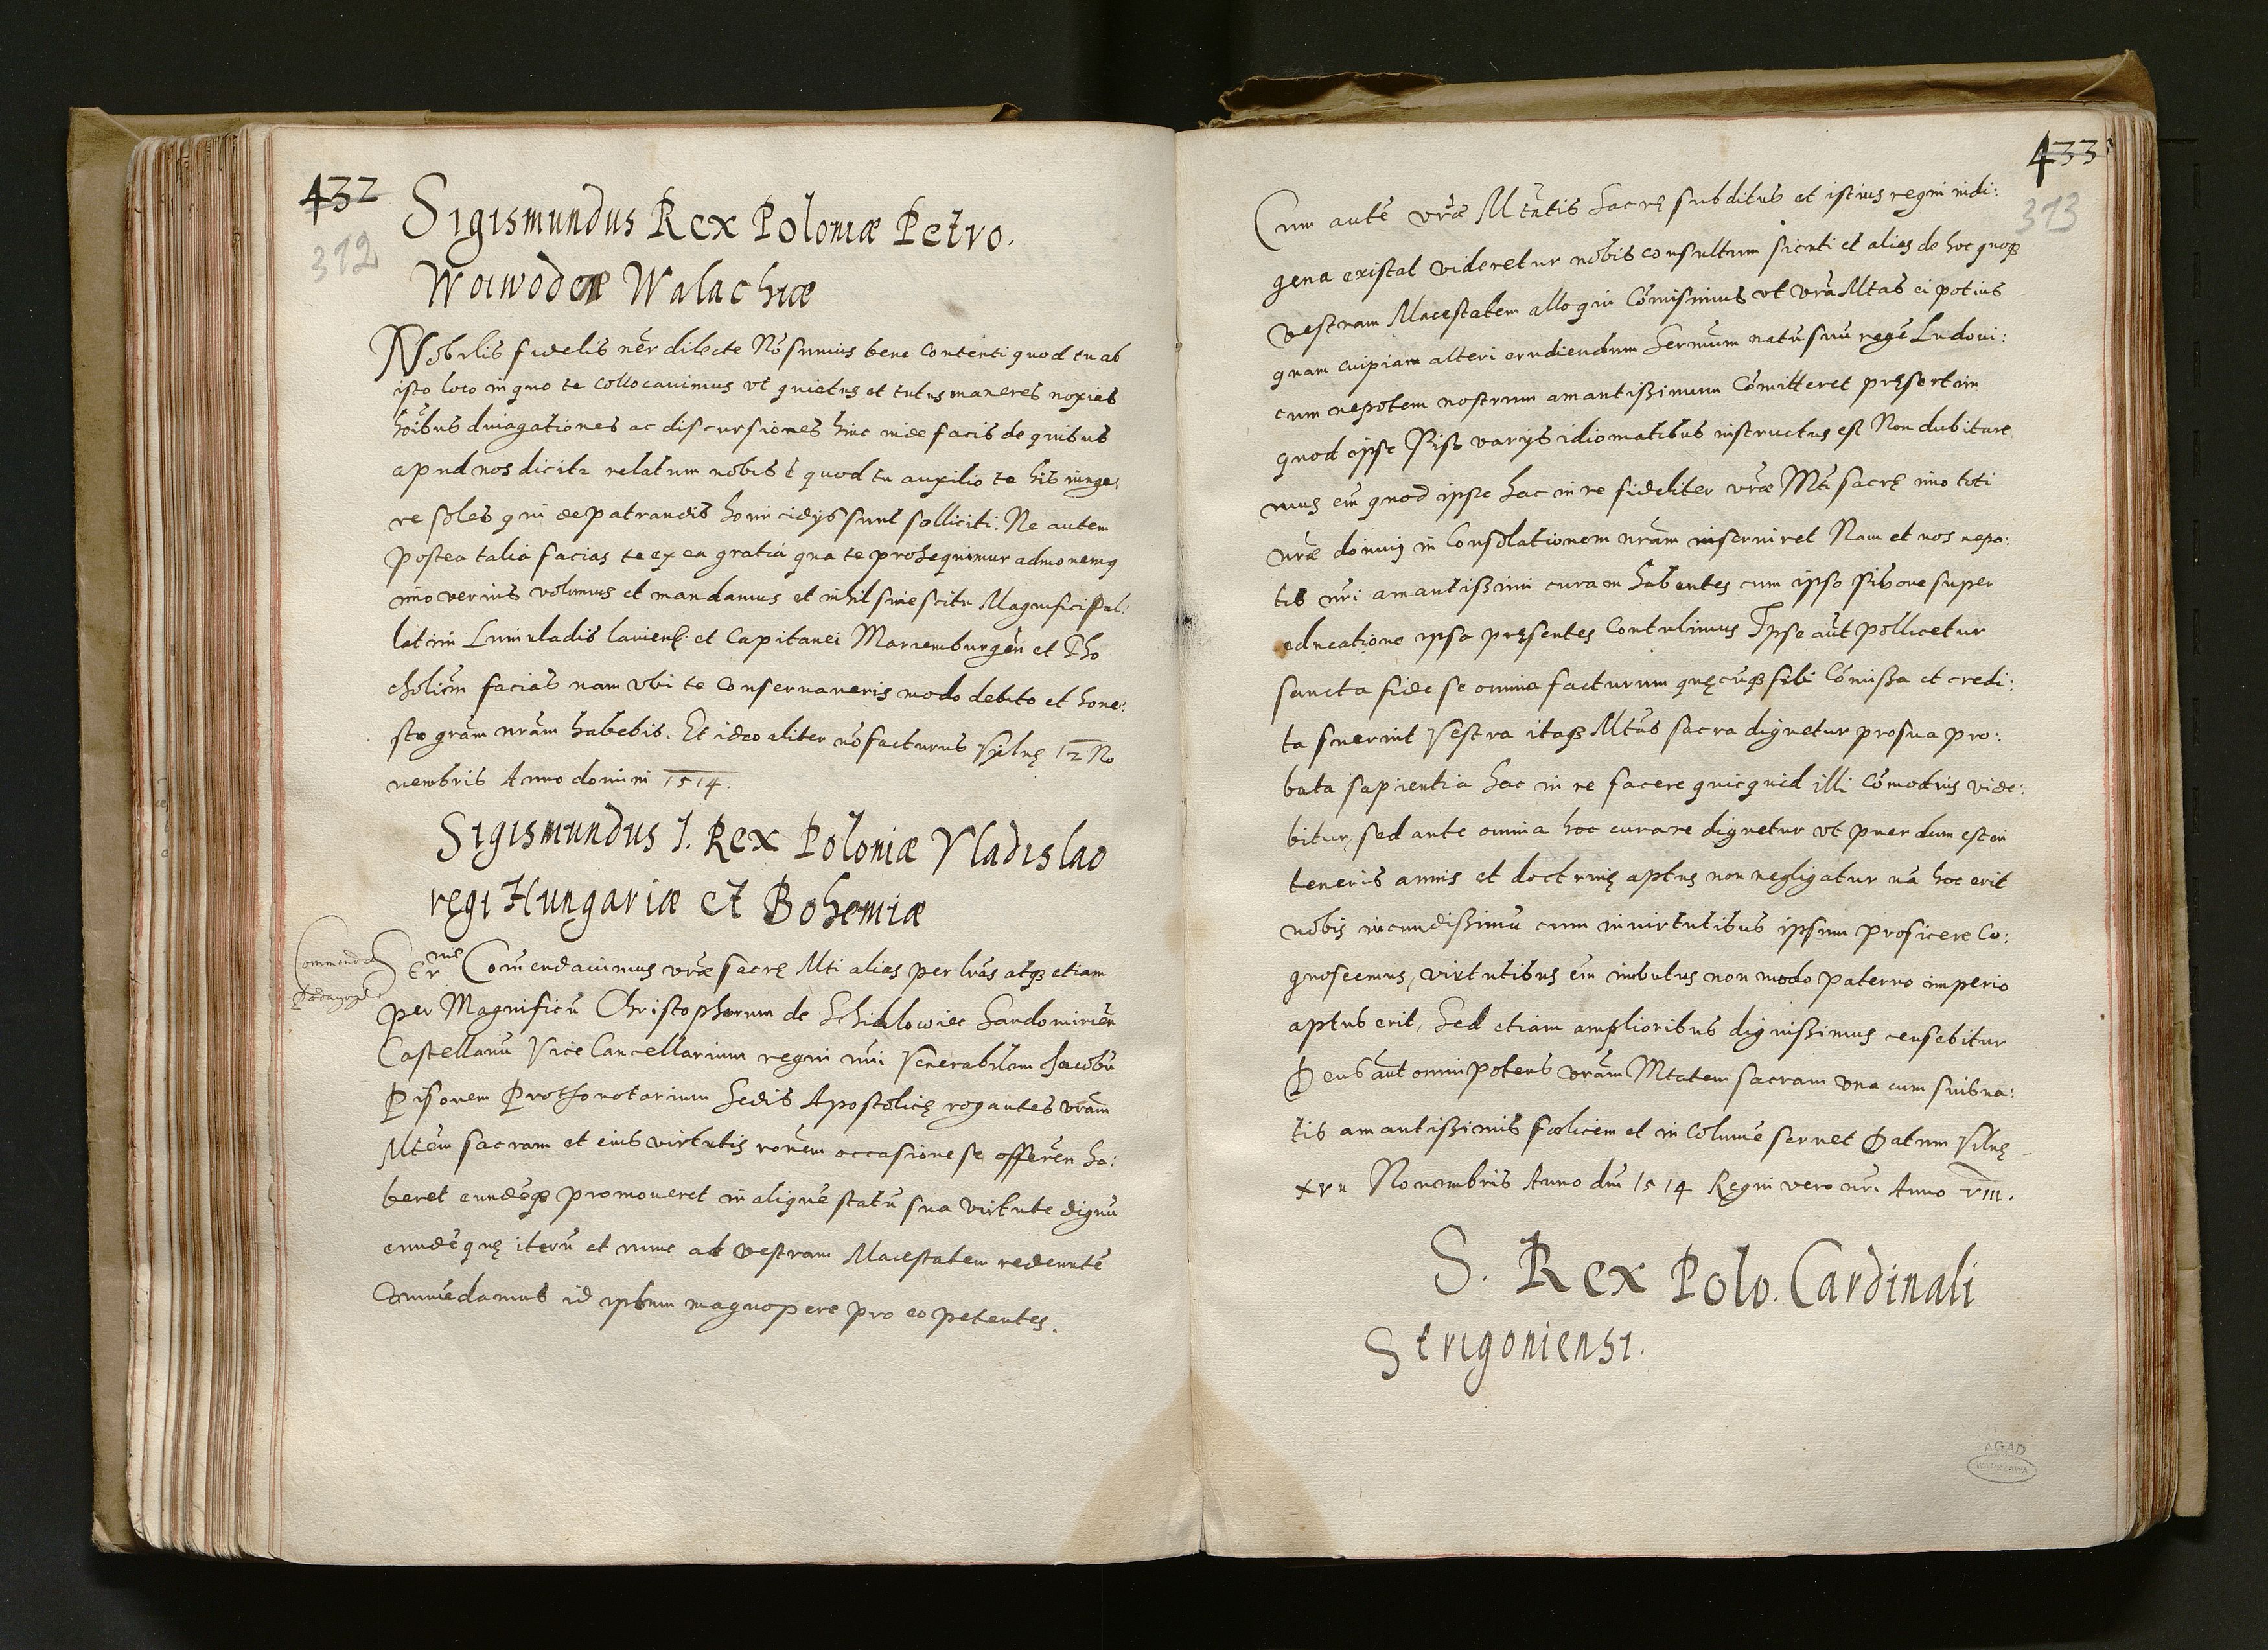 432
312
Sigismundus Rex Poloniæ Petro.
Woiwodæ Walachiæ
Nobilis fidelis nr̃ dilecte Nõ sumus bene contenti quod tu ab
isto loco in quo te collocavimus ut quietus et tutus maneres noxias
hoĩbus divagationes ac discursiones hinc inde facis de quibus
apud nos dicitr relatum nobis ẽ quod tu auxilio te his iunge:
re soles qui de patrandis homicidijs sunt solliciti: Ne autem
postea talia facias te ex ea gratia qua te prosequimur admonemq
imo verius volumus et mandamus et nihil sine scitu Magnifici Pal:
latini Luniuladislavieñ et Capitanei Mariemburgeñ et Tho
choliem̃ facias nam ubi te conservaveris modo debito et hone:
sto grãm nrãm habebis. Et ideo aliter nõ facturus Vylnę 12 No
uembris Anno domini 1514.
Sigismundus I. Rex Poloniæ Vladislao
regi Hungariæ et Bohemiæ
Commenda
Ser nie Com̃endavimus vrãe sacrę Mti alias per lrãs atqz etiam
per Magnificũ Christophorum de Schidlowiec Sandomirieñ
Castellanũ Vice Cancellarium regni nr̃i Venerabilem Jacobũ
Pisonem Prothonotarium Sedis Apostolicę rogantes vrãm
Mtem̃ sacram et eius virtutis rõnem occasione se offereñ ha:
beret eundẽqz promoveret in aliquẽ statũ sua virtute dignũ
eundẽquę iterũ et nunc ad vestram Maiestatem redeuntẽ
Commẽdamus id ipsum magnopere pro eo petentes.
433
313
Cum autẽ vrãe Mtãtis Sacrę subditus et istius regni indi:
gena existat videretur nobis consultum sicuti et alias de hoc quoqz
vestram Maiestatem alloqui Cõmisimus ut vrã Mtas ei potius
quam cuipiam alteri erudiendum Sermũm natũ suũ regẽ Ludoui:
cum nepotem nostrum amantissimum Cõmitteret pręsertim
quod ipse Piso varijs idiomatibus instructus est Non dubitare
mus em̃ quod ipse hac in re fideliter vrãe Mti sacrę imo toti
vrãe domui in Consolationem nrãm inserviret Nam et nos nepo:
tis nr̃i amantissimi curam habentes cum ipso Pisone super
educatione ipsa pręsentes Contulimus Ipse aũt pollicetur
sancta fide se omnia facturum quęcũqz sibi Cõmissa et credi:
ta fuerint Vestra itaqz Mtãs sacra dignetur pro sua pro:
bata sapientia hac in re facere quicquid illi Cõmodius vide:
bitur, sed ante omnia hoc curare dignetur ut puer dum est in
teneris annis et doctrinę aptus non negligatur nã hoc erit
nobis iucundissimũ cum in virtutibus ipsum proficere Co:
gnoscemus, virtutibus em̃ imbutus non modo paterno imperio
aptus erit, Sed etiam amplioribus dignissimus censebitur
Deus aũt omnipotens vrãm Mtatem sacram una cum suis na:
tis amantissimis fœlicem et in colume servet Datum Vilnę
xvii Nouembris Anno dni 1514 Regni vero nr̃i Anno viii.
S. Rex Polo. Cardinali
Strigoniensi.
AGAD
WARSZAWA